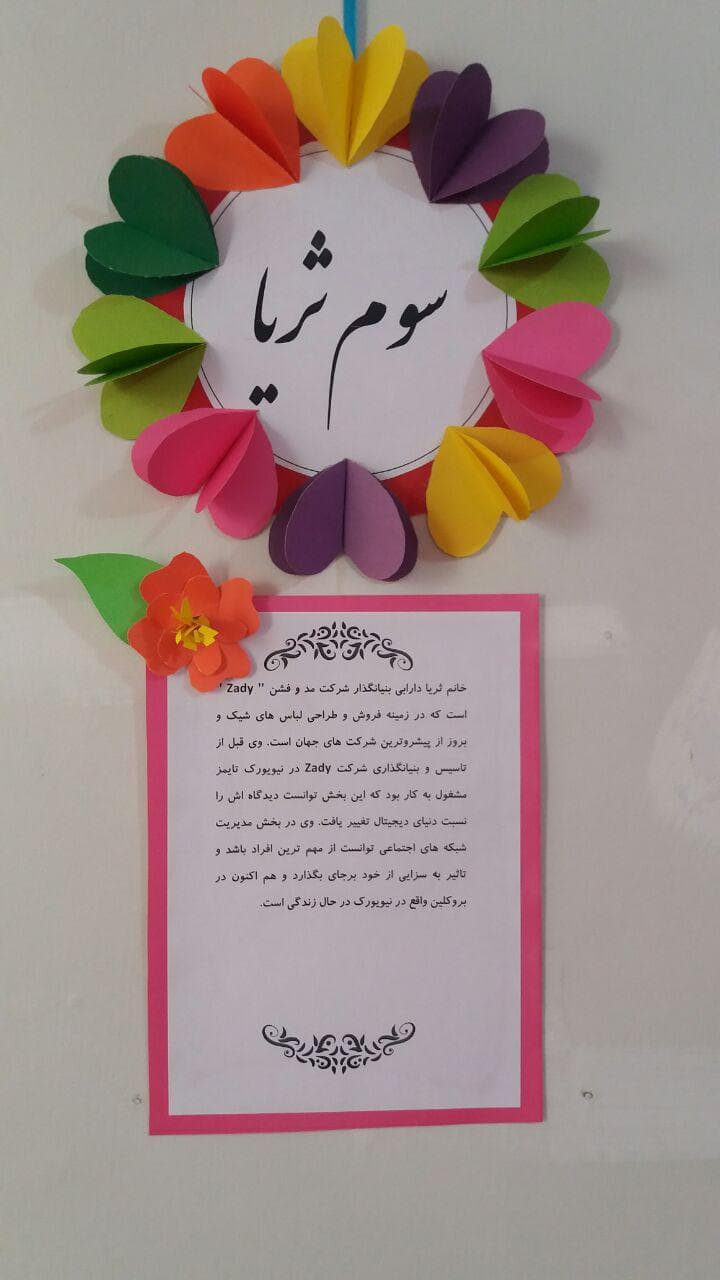 سوم ثریا
خانم ثریا دارابی بنیانگذار شرکت مد و فشن " Zady "
است که در زمینه فروش و طراحی لباس های شیک و
بروز از پیشروترین شرکت های جهان است. وی قبل از
تاسیس و بنیانگذاری شرکت Zady در نیویورک تایمز
مشغول به کار بود که این بخش توانست دیدگاه اش را
نسبت دنیای دیجیتال تغییر یافت. وی در بخش مدیریت
شبکه های اجتماعی توانست از مهم ترین افراد باشد و
تاثیر به سزایی از خود برجای بگذارد و هم اکنون در
بروکلین واقع در نیویورک در حال زندگی است.